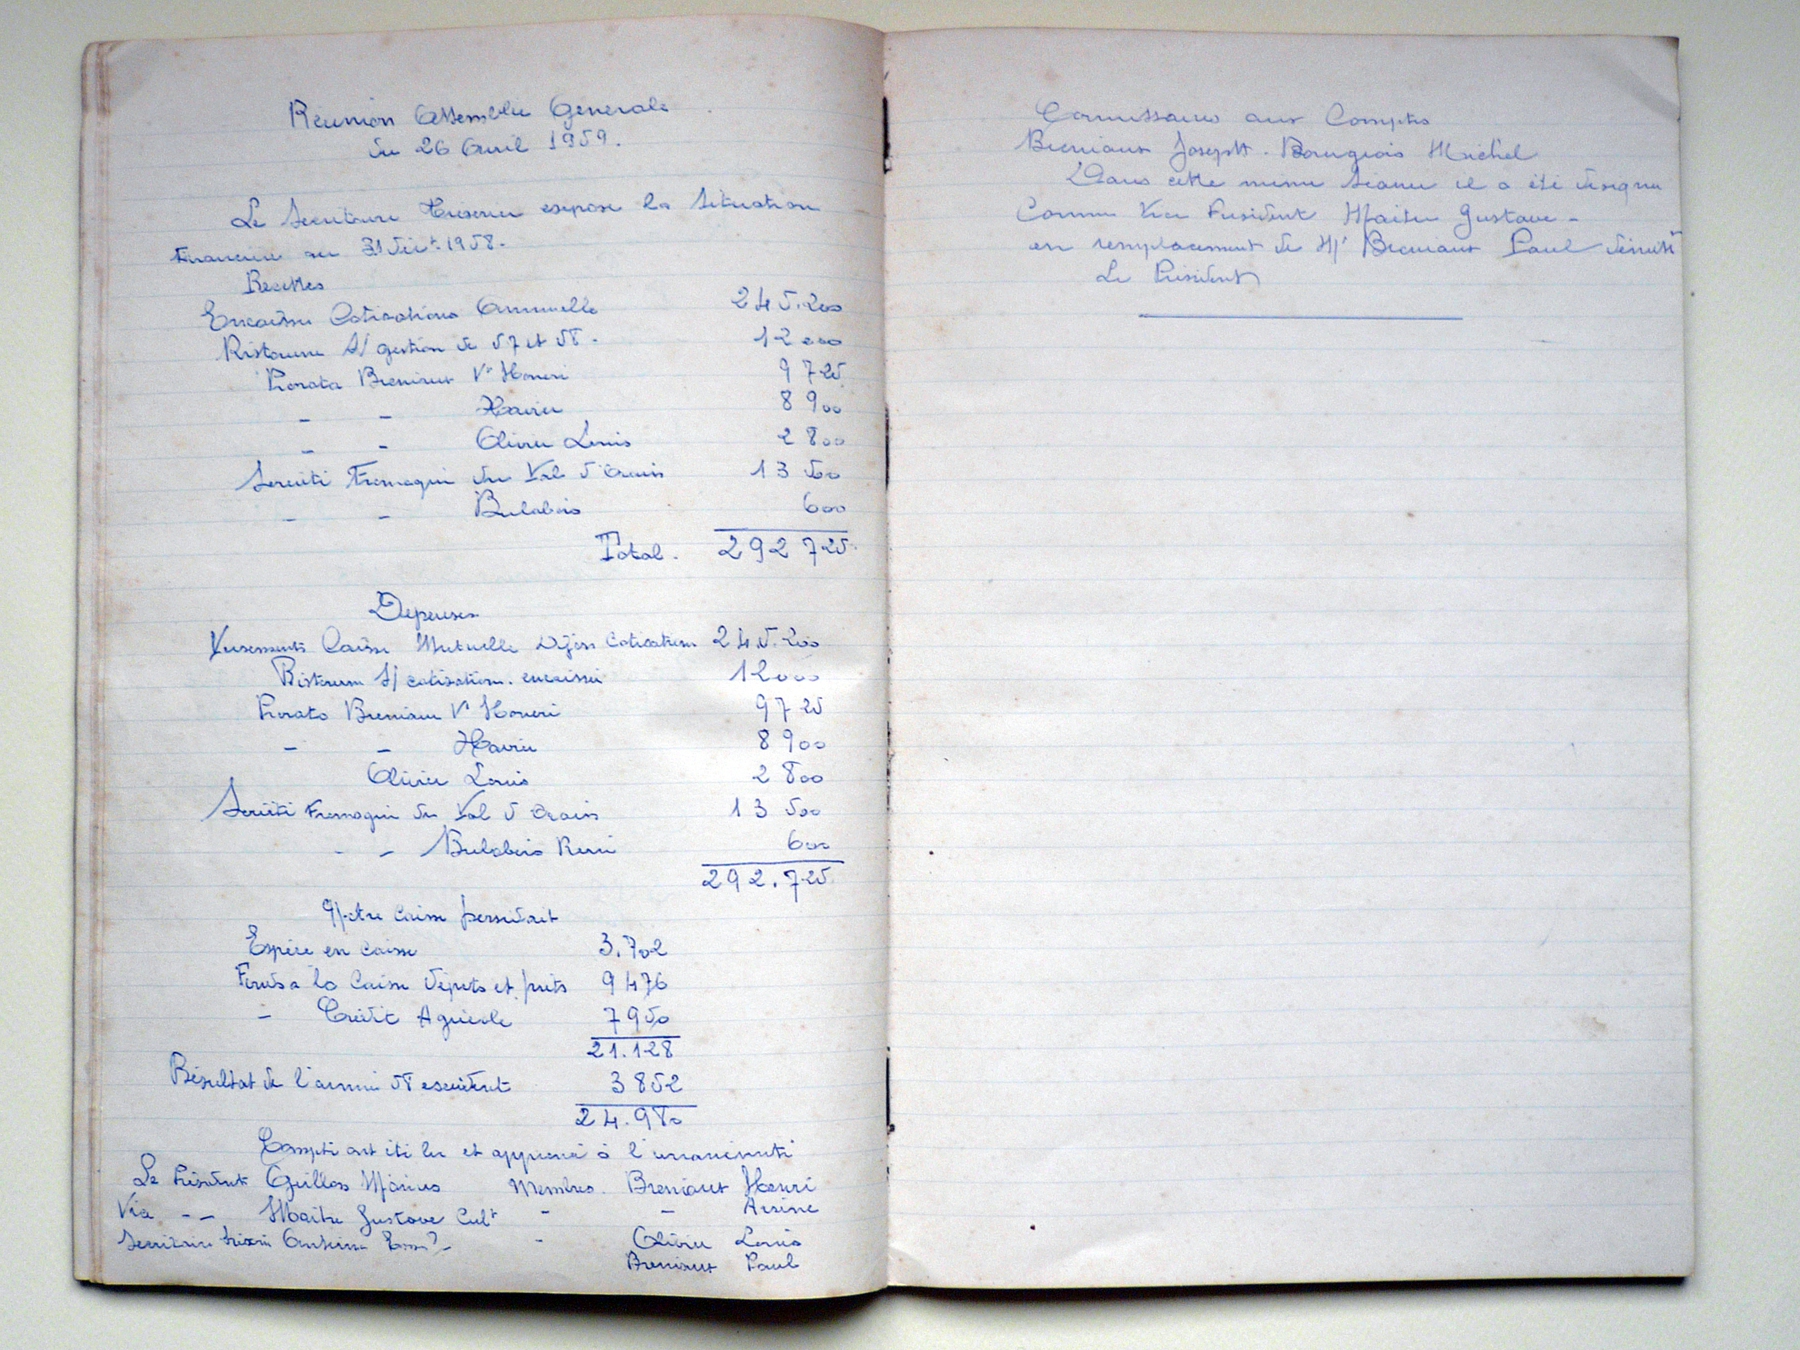 Réunion Assemblée Générale
du 26 Avril 1959.
Le Secretaire Trésorier expose la Situation
Financière au 31 Déct 1958.
Recettes
Encaisse Cotisations Annuelle 245.200
Ristourne S/ gestion de 57 et 58. 12000
Prorata Breniaux Ve Henri 9725
- - Xavier 8900
- - Olivier Louis 2800
Société Fromagerie du Val d'Orain 13500
- - Bulabois 600
Total. 292725.
Depenses
Versements Caisse Mutuelle Dijon Cotisations 245.200
Ristourne S/ cotisation. encaissée 12000
Prorata Breniaux Ve Henri 9725
- - Xavier 8900
Olivier Louis 2800
Société Fromagerie du Val d Orain 13500
- - Bulabois Remi 600
292.725
Notre caisse possédait
Espèce en caisse 3.702
Fonds a la Caisse dépots et prets 9476
- Crédit Agricole 7950
21.128
Résultat de l'année 58 excédent 3852
24.980
Compte ont été lu et approuvé à l'unanimité
Le Président Guillos Marius Membres. Breniaux Henri
Vice - - Maitre Gustave Cult - - Arsène
Secrétaire trésorié Antoine - Olivier Louis
Breniaux Paul
Commissaires aux Comptes
Breniaux Joseph. Bourgeois Michel
Dans cette meme Séance il a été désigné
Comme Vice President Maitre Gustave -
en remplacement de Mr Breniaux Paul
Le Président